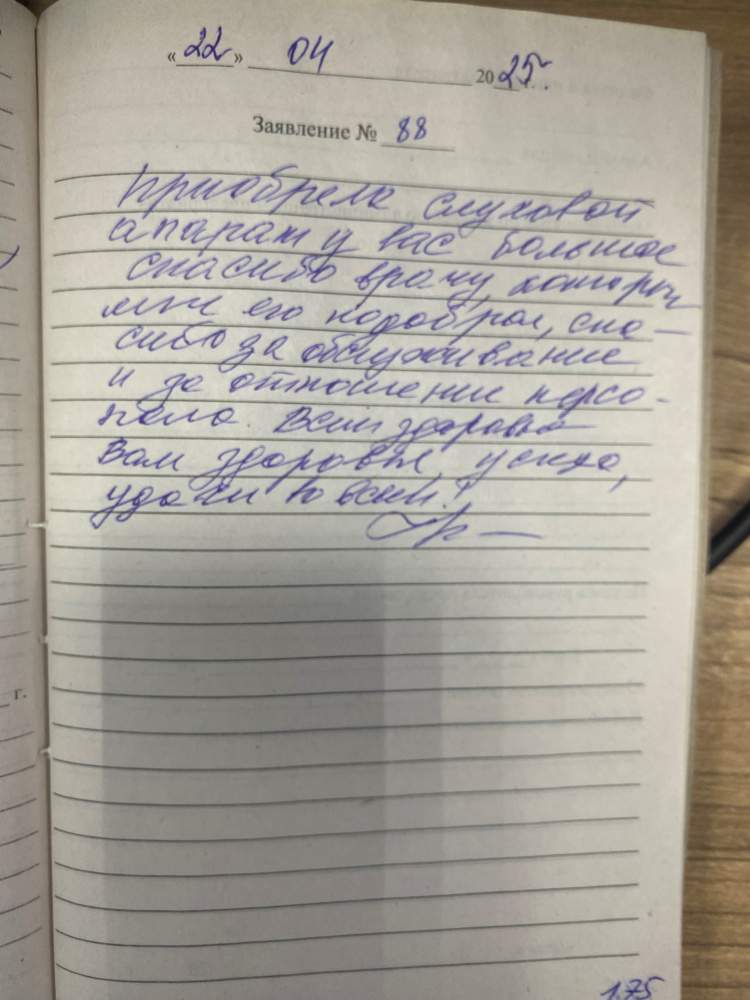 «22» 04 2025 г.
Заявление № 88
Приобрела слуховой
апарат у вас большое
спасибо врачу, который
мне его подобрал, спа-
сибо за обслуживание
и за отношении персо-
нала. Всем здоровья
Вам здоровья, успеха,
удачи во всем!
г.
175